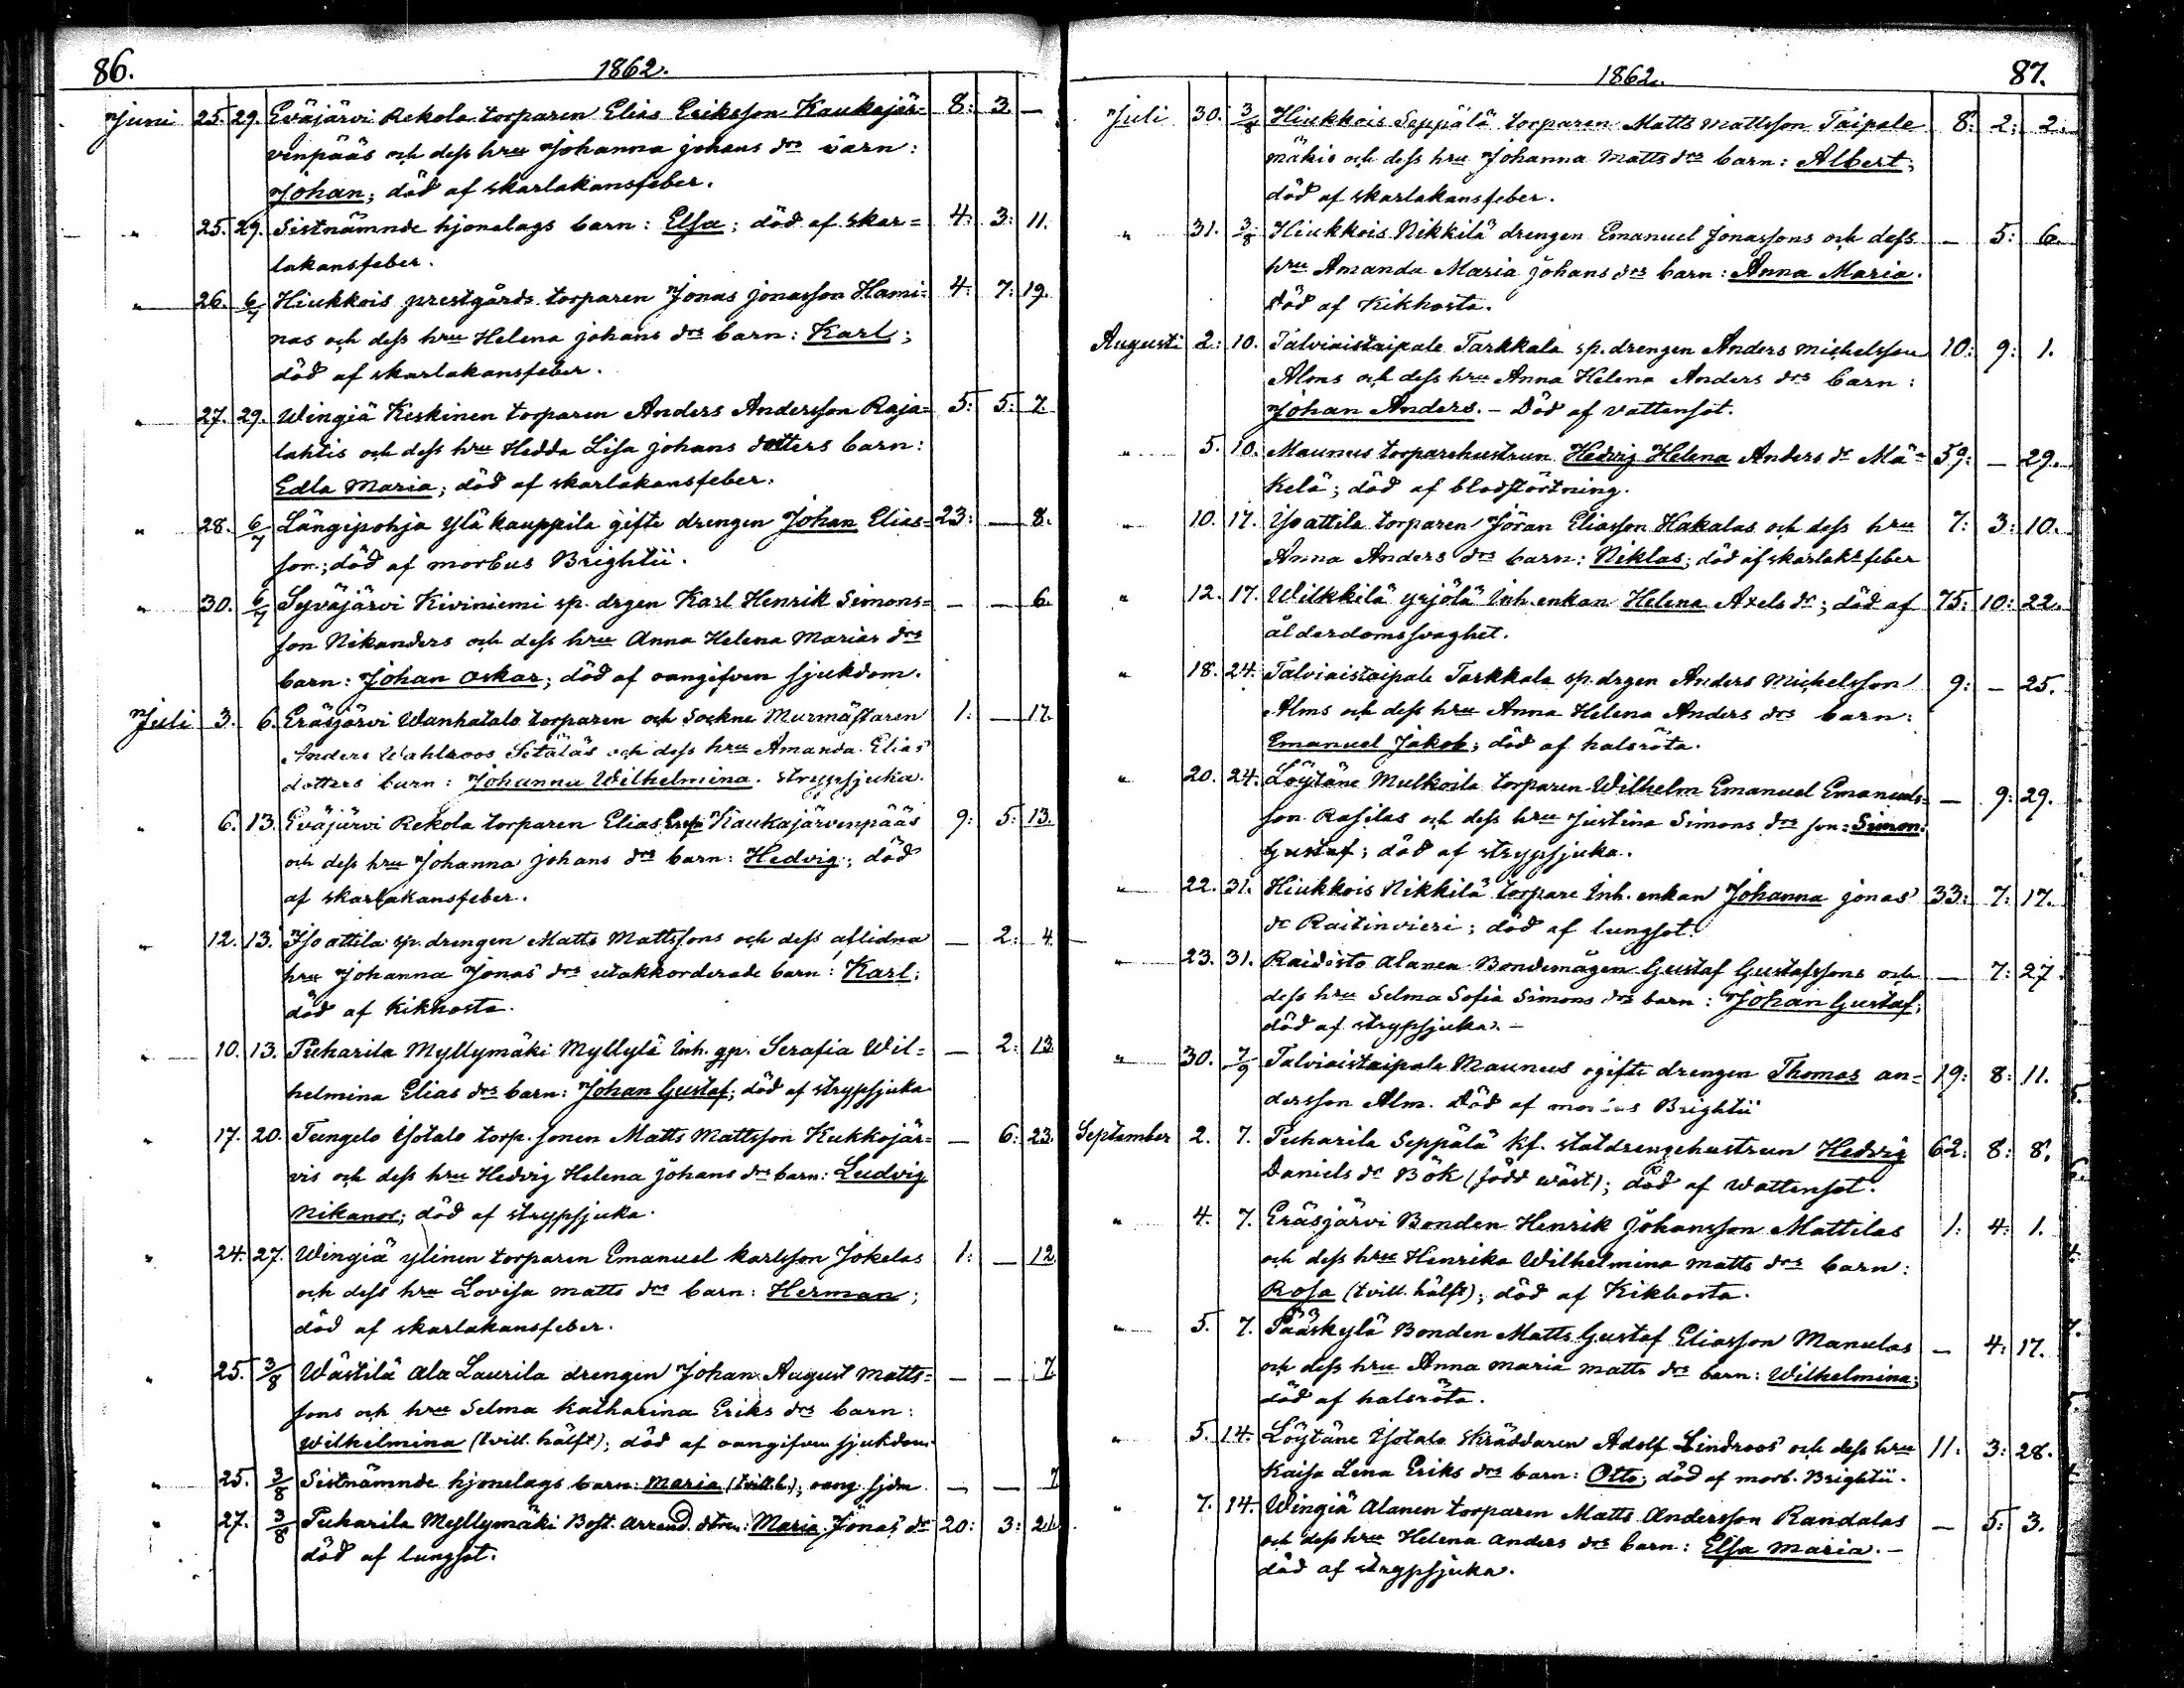 86.
1862.
Juni 25. 29. Eväjärvi Rekola torparen Elias Eriksson Kaukajär= 8: 3. —
venpääs och dess hru Johanna Johans drs barn:
Johan; död af skarlakansfeber.
" 25. 29. Sistnämnde hjonelags barn: Elsa; död af skar= 4: 3: 11.
lakansfeber.
" 26. 6/7 Hiukkois prestgårds torparen Jonas Jonasson Hami= 4: 7: 19.
nas och dess hru Helena Johans drs barn: Karl;
död af skarlakansfeber.
" 27. 29. Wingiä Keskinen torparen Anders Andersson Raja= 5: 5: 7.
lahtis och dess hru Hedda Lisa Johans dotters barn:
Edla Maria; död af skarlakansfeber.
" 28. 6/7 Längipohja Ylä kauppila gifte drengen Johan Elias= 23: — 8.
son; död af morbus Brightii.
" 30. 6/7 Syväjärvi Kiviniemi sp. drgen Karl Henrik Simons= — — 6.
son Nikanders och dess hru Anna Helena Marias drs
barn: Johan Oskar; död af oangifven sjukdom.
Juli 3. 6. Eräsjärvi Wanhatalo torparen och Sockne Murmästaren 1: — 17.
Anders Wahlroos Setäläs och dess hru Amanda Elias
dotters barn: Johanna Wilhelmina. strypsjuka.
" 6. 13. Eväjärvi Rekola torparen Elias Erss Kaukajärvenpääs 9: 5: 13.
och dess hru Johanna Johans drs barn: Hedvig; död
af skarlakansfeber.
" 12. 13. Iso attila sp. drengen Matts Mattssons och dess aflidna — 2: 4.
hru Johanna Jonas drs utakkorderade barn: Karl;
död af Kikhosta.
" 10. 13. Puharila Myllymäki Myllylä Inh. gp. Serafia Wil= — 2: 13
helmina Elias drs barn: Johan Gustaf; död af strypsjuka
" 17. 20. Tungelo Isotalo torp. sonen Matts Mattsson Kukkojär= — 6: 23.
vis och dess hru Hedvig Helena Johans drs barn: Ludvig
Nikanor; död af strypsjuka.
" 24. 27. Wingiä ylinen torparen Emanuel Karlsson Jokelas 1: — 12.
och dess hru Lovisa Matts drs barn: Herman;
död af skarlakansfeber.
" 25. 3/8 Wästilä Ala Laurila drengen Johan August Matts= — — 7.
sons och hru Selma Katharina Eriks drs barn:
Wilhelmina (tvill. hälft); död af oangifven sjukdom.
" 25. 3/8 Sistnämnde hjonelags barn: Maria (tvill.h.); oang. sjdm — — 7
" 27. 3/8 Puharila Myllymäki Bost. arrend. dtren: Maria Jonas dr 20: 3: 21.
död af lungsot.
1862.
87.
Juli 30. 3/8 Hiukkois Seppälä torparen Matts Mattsson Taipale 8: 2: 2.
mäkis och dess hru Johanna Matts drs barn: Albert;
död af skarlakansfeber.
" 31. 3/8 Hiukkois Nikkilä drengen Emanuel Jonassons och dess — 5: 6.
hru Amanda Maria Johans drs barn: Anna Maria.
Död af Kikhosta.
Augusti 2: 10. Talviaistaipale Tarkkala sp. drengen Anders Michelsson 10: 9: 1.
Alms och dess hru Anna Helena Anders drs barn:
Johan Anders. – Död af vattensot.
" 5. 10. Maunus torparehustrun Hedvig Helena Anders dr Mä= 59: — 29.
kelä; död af blodstörtning.
" 10. 17. Iso attila torparen Jöran Eliasson Hakalas och dess hru 7: 3: 10.
Anna Anders drs barn: Niklas; död af skarlaksfeber
" 12. 17. Wilkkilä Yrjölä Inh. enkan Helena Axels dr; död af 75: 10: 22.
ålderdomssvaghet.
" 18. 24. Talviaistaipale Tarkkala sp. drgen Anders Michelsson 9: — 25.
Alms och dess hru Anna Helena Anders drs barn:
Emanuel Jakob; död af halsröta.
" 20. 24. Löytäne Mulkoila torparen Wilhelm Emanuel Emanuels= — 9: 29.
son Rasilas och dess hru Justina Simons drs son: Simon
Gustaf; död af strypsjuka.
" 22. 31. Hiukkois Nikkilä torpare Inh. enkan Johanna Jonas 33: 7: 17.
dr Raitinvieri; död af lungsot.
" 23. 31. Raidisto Alanen Bondemågen Gustaf Gustafssons och — 7: 27.
dess hru Selma Sofia Simons drs barn: Johan Gustaf;
död af strypsjuka. –
" 30. 7/9 Talviaistaipale Maunus ogifte drengen Thomas An= 19: 8: 11.
dersson Alm. Död af morbus Brightii
September 2. 7. Puharila Seppälä kf. statdrengehustrun Hedvig 62: 8: 8.
Daniels dr Bök (född wäst); död af Wattensot.
" 4. 7. Eräsjärvi Bonden Henrik Johansson Mattilas 1: 4: 1.
och dess hru Henrika Wilhelmina Matts drs barn:
Rosa (tvill. hälft); död af Kikhosta.
" 5. 7. Pääskylä Bonden Matts Gustaf Eliasson Manulas — 4: 17.
och dess hru Anna Maria Matts drs barn: Wilhelmina;
död af halsröta.
" 5. 14. Löytäne Isotalo Skräddaren Adolf Lindroos och dess hru 11: 3: 28.
Kaisa Lena Eriks drs barn: Otto; död af morb. Brightii.
" 7. 14. Wingiä Alanen torparen Matts Andersson Randalas — 5: 3.
och dess hru Helena Anders drs barn: Elsa Maria. –
död af strypsjuka.